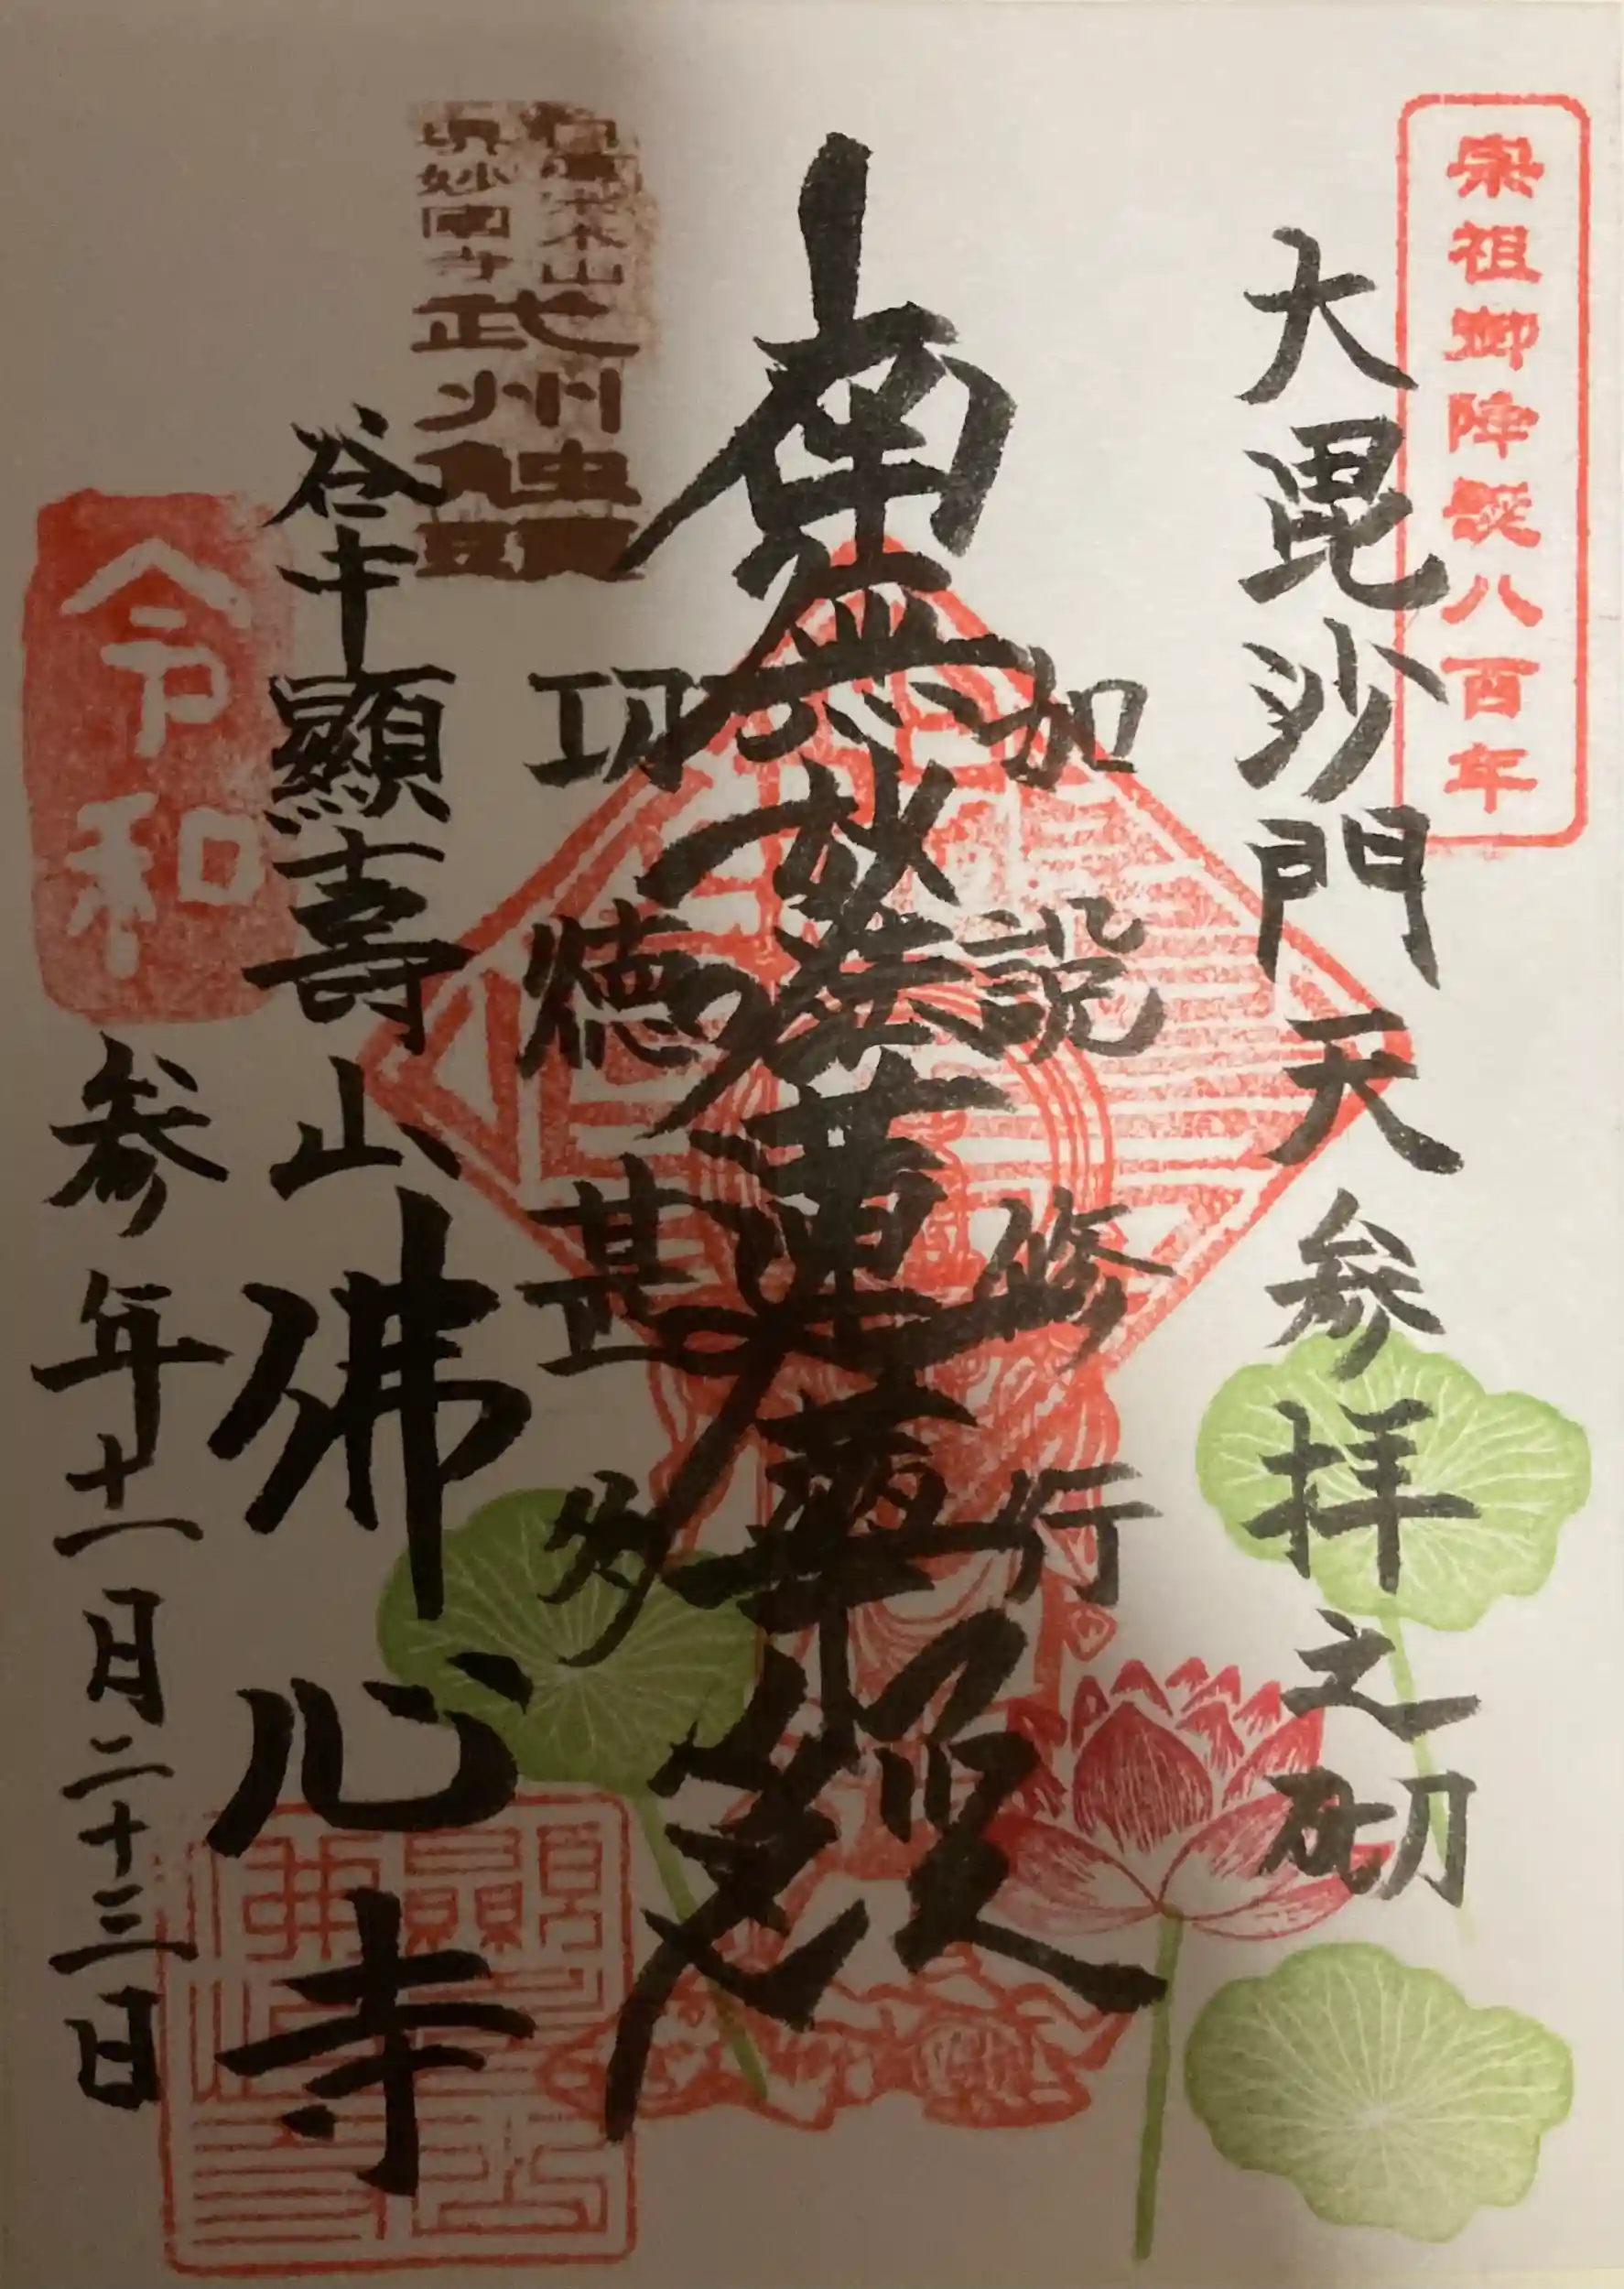 宗祖御降誕八百年
大毘沙門天参拝之砌
如説修行
南無妙法蓮華経
功徳甚多
本山
眞妙國寺
武州触頭
谷中顯壽山佛心寺
令和
参年十一月二十三日